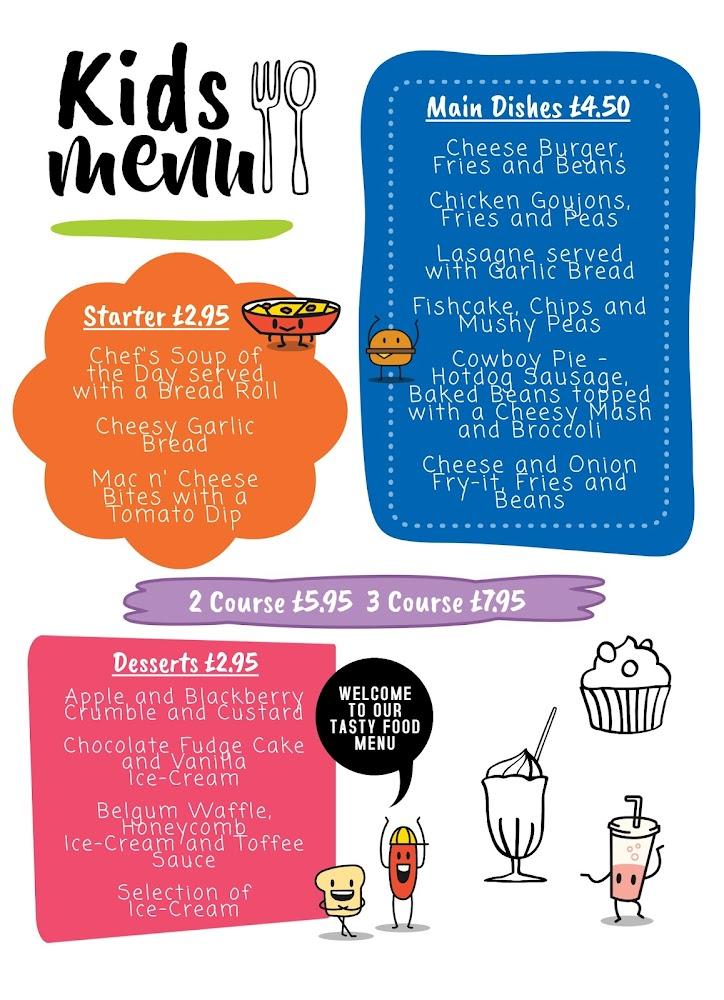 Kids
menu
Main Dishes £4.50
Cheese Burger,
Fries and Beans
Chicken Goujons,
Fries and Peas
Lasagne served
with Garlic Bread
Fishcake, Chips and
Mushy Peas
Cowboy Pie -
Hotdog Sausage,
Baked Beans topped
with a Cheesy Mash
and Broccoli
Cheese and Onion
Fry-it, Fries and
Beans
Starter £2.95
Chef's Soup of
the Day served
with a Bread Roll
Cheesy Garlic
Bread
Mac n' Cheese
Bites with a
Tomato Dip
2 Course £5.95 3 Course £7.95
Desserts £2.95
Apple and Blackberry
Crumble and Custard
Chocolate Fudge Cake
and Vanilla
Ice-Cream
Belgum Waffle,
Honeycomb
Ice-Cream and Toffee
Sauce
Selection of
Ice-Cream
WELCOME
TO OUR
TASTY FOOD
MENU